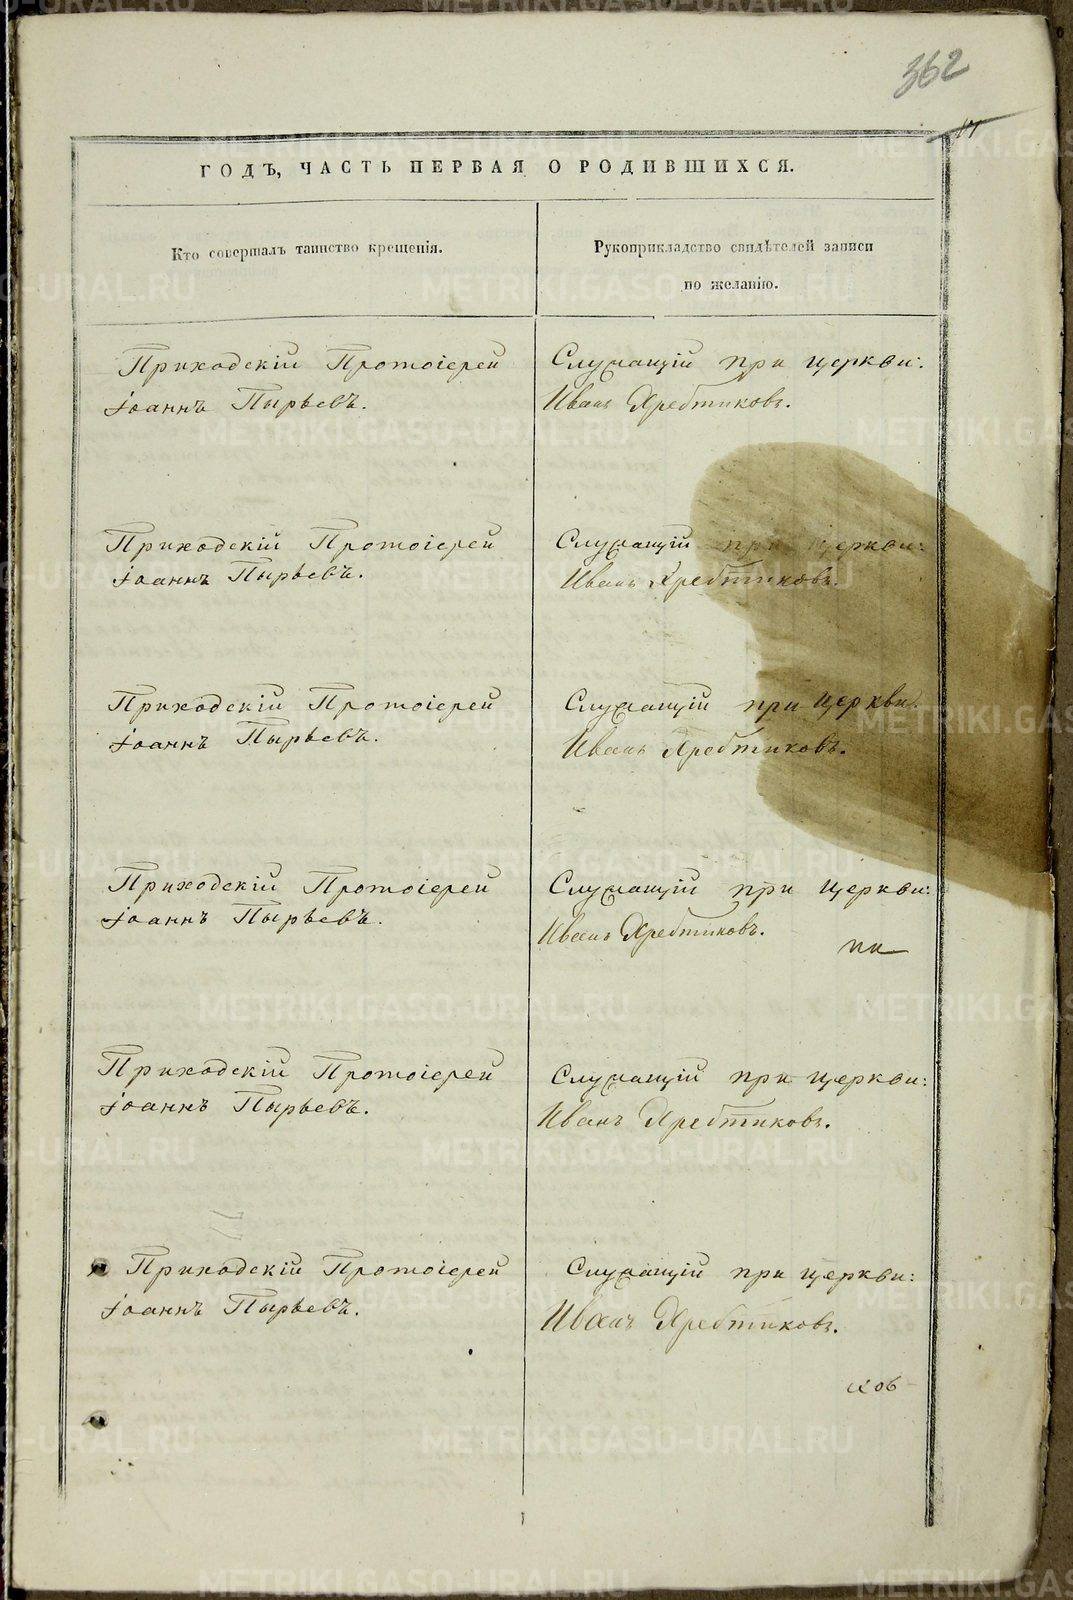 362
ГОДЪ, ЧАСТЬ ПЕРВАЯ О РОДИВШИХСЯ.
Кто совершалъ таинство крещенія.
Рукоприкладство свидѣтелей записи
по желанію.
Приходскій Протоіерей
Іоаннъ Пырьевъ.
Служащій при церкви:
Иванъ Хребтиковъ.
Приходскій Протоіерей
Іоаннъ Пырьевъ.
Служащій при церкви:
Иванъ Хребтиковъ.
Приходскій Протоіерей
Іоаннъ Пырьевъ.
Служащій при церкви.
Иванъ Хребтиковъ.
Приходскій Протоіерей
Іоаннъ Пырьевъ.
Служащій при церкви:
Иванъ Хребтиковъ.
Приходскій Протоіерей
Іоаннъ Пырьевъ.
Служащій при церкви:
Иванъ Хребтиковъ.
Приходскій Протоіерей
Іоаннъ Пырьевъ.
Служащій при церкви:
Иванъ Хребтиковъ.
METRIKI.GASO-URAL.RU